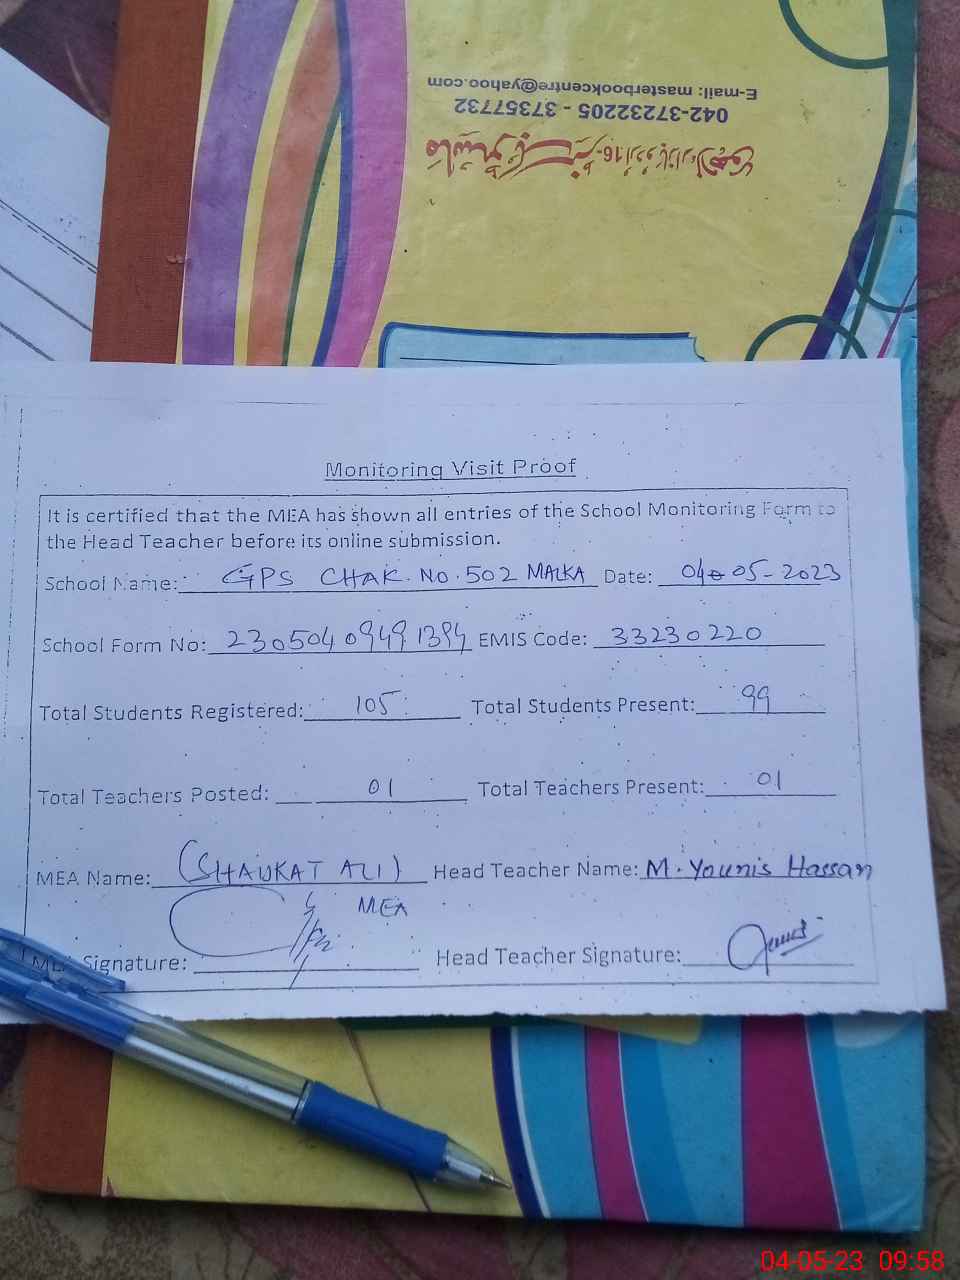 E-mail: masterbookcentre@yahoo.com
042-37232205 - 37357732
Monitoring Visit Proof
It is certified that the MEA has shown all entries of the School Monitoring Form to
the Head Teacher before its online submission.
School Name: GPS CHAK. NO. 502 MALKA Date: 04-05-2023
School Form No: 23050409491394 EMIS Code: 33230220
Total Students Registered: 105 Total Students Present: 99
Total Teachers Posted: 01 Total Teachers Present: 01
MEA Name: (SHAUKAT ALI) Head Teacher Name: M. Younis Hassan
MEA
MEA Signature: Head Teacher Signature:
04-05-23 09:58